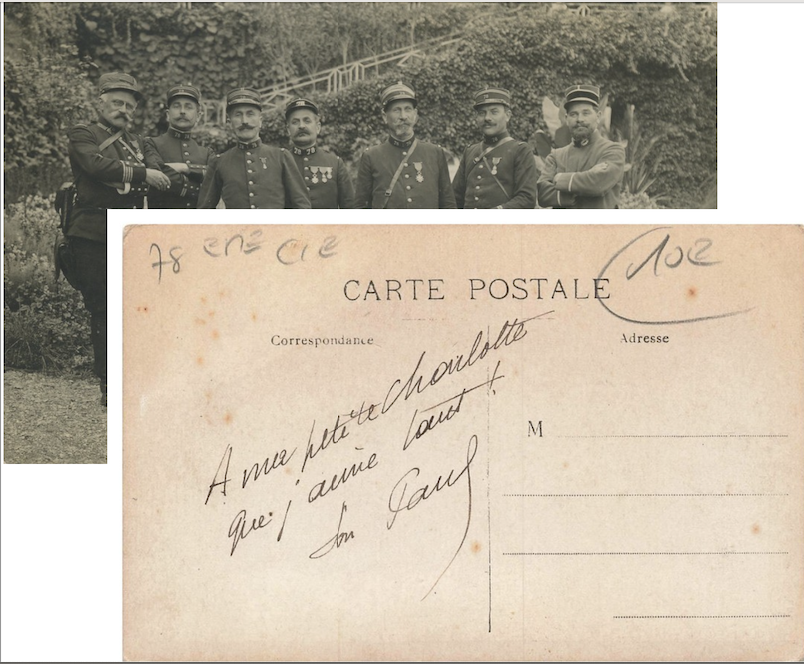 78 EME CIE
CARTE POSTALE
Correspondance
Adresse
A ma petite Charlotte
que j'aime tant !
Son Paul
M